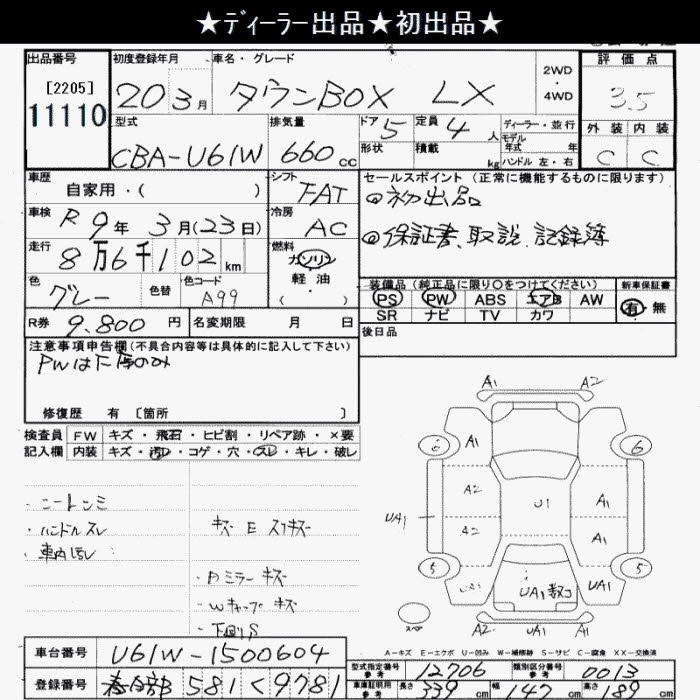 ★ディーラー出品★初出品★
出品番号
[2205]
11110
初度登録年月
20 3月
車名・グレード
タウンBOX LX
2WD
・
4WD
評価点
3.5
外装 内装
C C
型式
CBA-U61W
排気量
660cc
ドア 5
形状
定員 4人
積載 kg
ディーラー・並行
モデル年式 年
ハンドル 左・右
車歴
自家用・( )
シフト
FAT
車検 R9年3月(23日)
冷房
AC
走行 8万6千102km
燃料
ガソリン
軽油
( )
色 グレー
色替
色コード A99
R券 9.800円
名変期限 月 日
セールスポイント(正常に機能するものに限ります)
◎初出品
◎保証書、取説、記録簿
装備品(純正品に限り○をつけてください)
PS PW ABS エアB AW
SR ナビ TV カワ
新車保証書
有 無
後日品
注意事項申告欄(不具合内容等は具体的に記入して下さい)
PWはF席のみ
修復歴 有 〔箇所 〕
検査員 FW キズ・飛石・ヒビ割・リペア跡・×要
記入欄 内装 キズ・汚レ・コゲ・穴・スレ・キレ・破レ
・ハンドルスレ
・Pミラー キズ
・Wキャップ キズ
・下回りS
A1 A2
6 A1 6
A2 U1 A1
UA1 A2 A1
5 5
UA1 UA1
スペア
A2 UA1 A1
A-キズ E-エクボ U-凹み W-補修跡 S-サビ C-腐食 XX-交換済
車台番号 U61W-1500604
登録番号 春日部 581 く 9781
型式指定番号 参考 12706
類別区分番号 参考 0013
車庫証明用 参考 長さ 339cm 幅 147cm 高さ 189cm